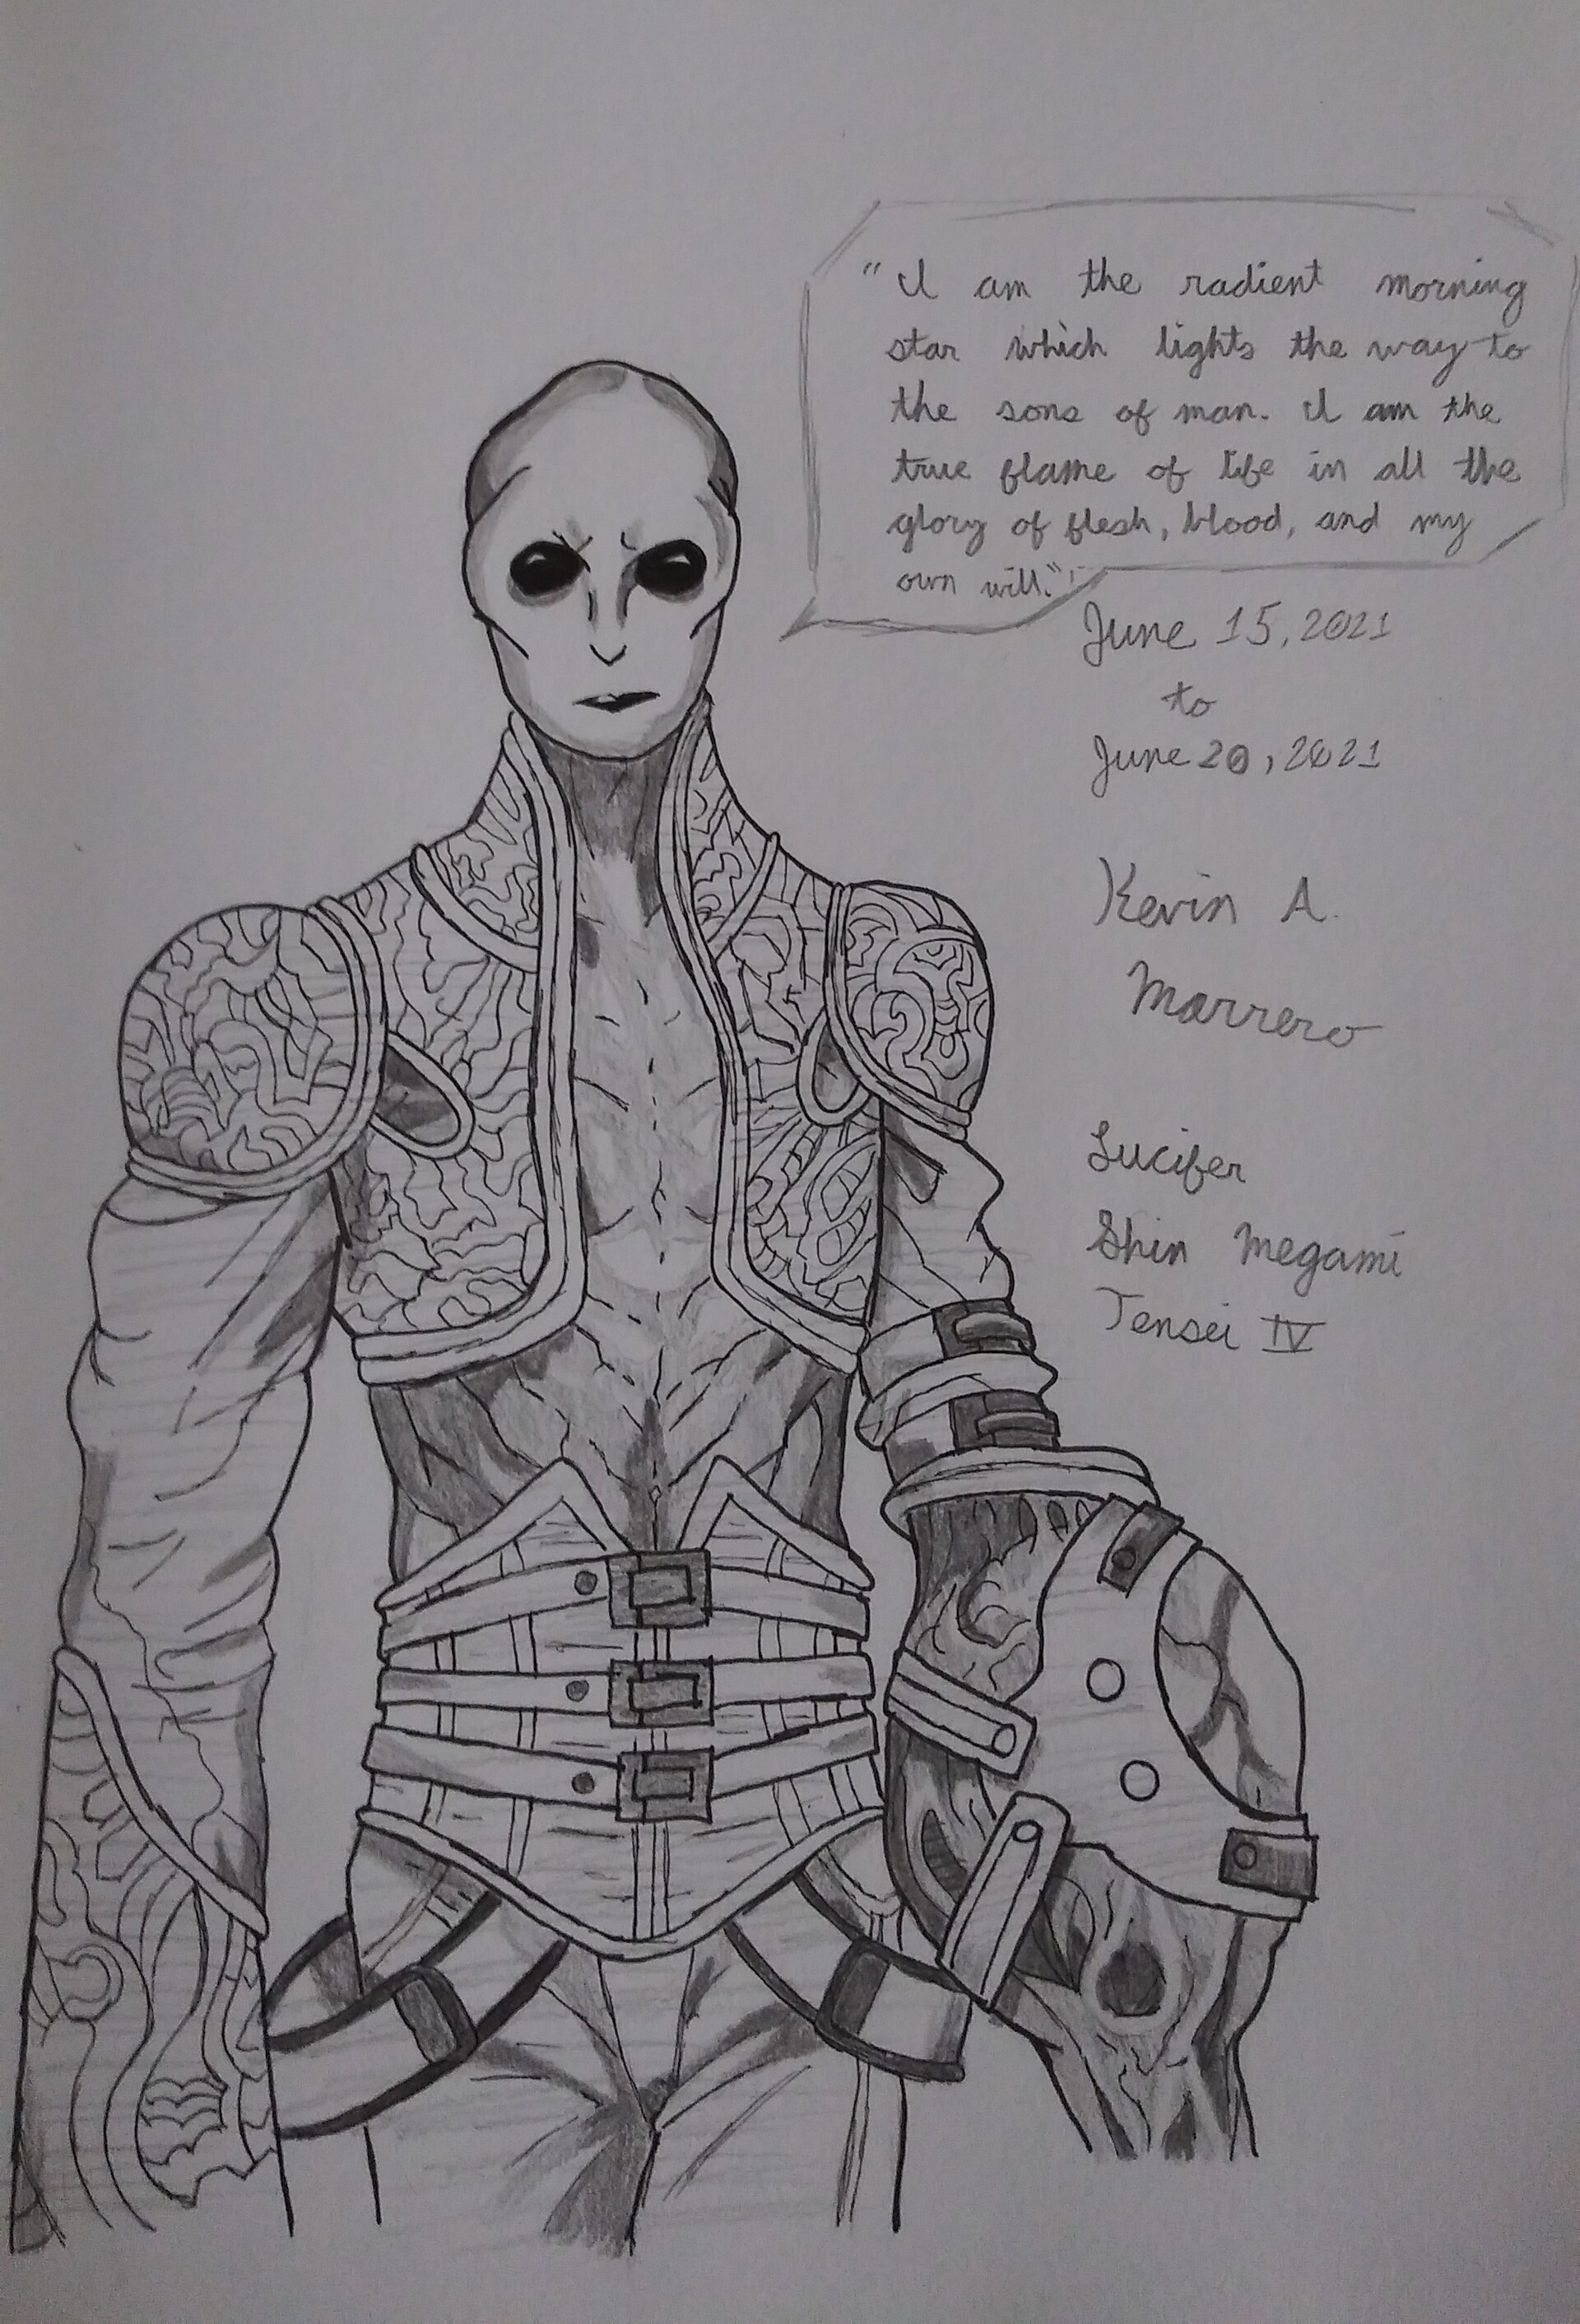 "I am the radient morning
star which lights the way to
the sons of man. I am the
true flame of life in all the
glory of flesh, blood, and my
own will."
June 15, 2021
to
June 20, 2021
Kevin A.
Marrero
Lucifer
Shin Megami
Tensei IV